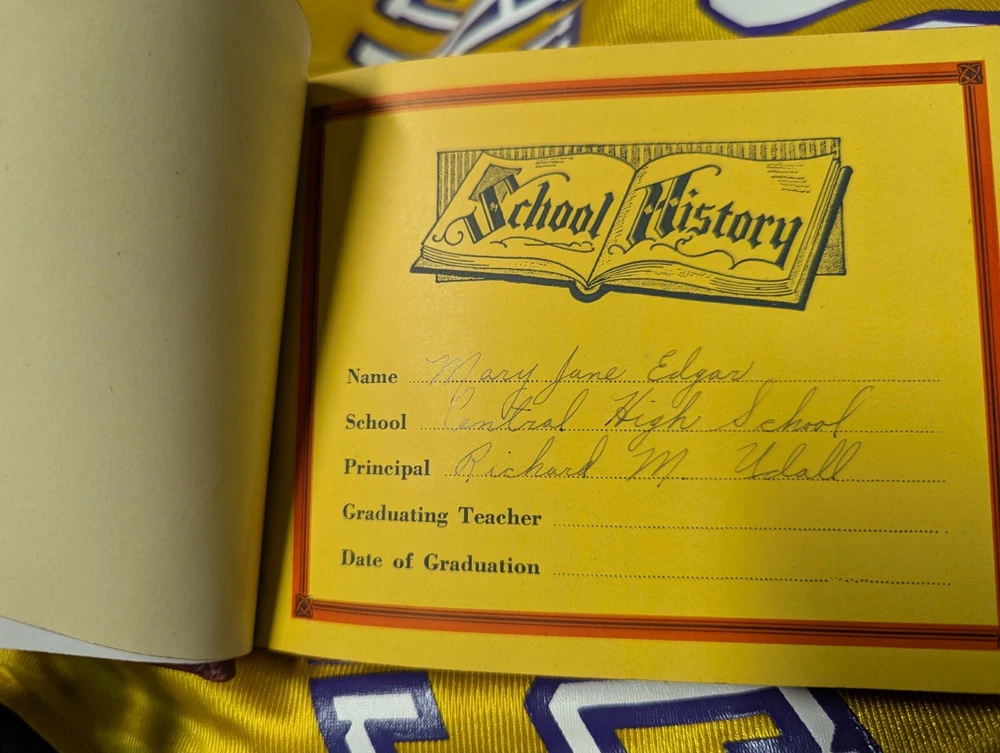 School History
Name Mary Jane Edgar
School Central High School
Principal Richard M. Udall
Graduating Teacher
Date of Graduation